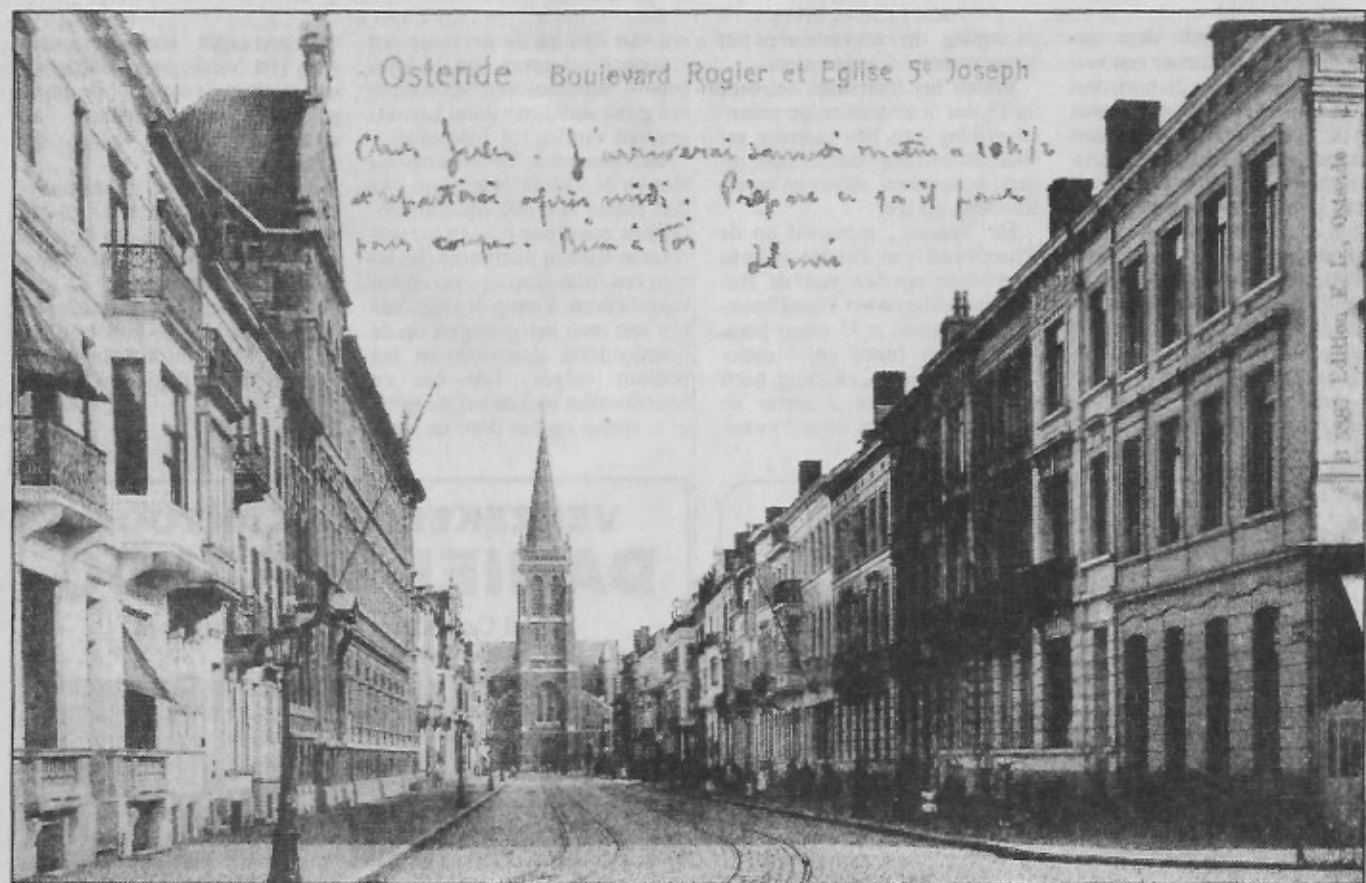 Ostende Boulevard Rogier et Eglise St Joseph
Cher Jules. J'arriverai samedi matin a 10 h 1/2
et repartirai après midi. Prépare ce qu'il faut
pour couper. Bien à Toi
Henri
Edition E. L., Ostende